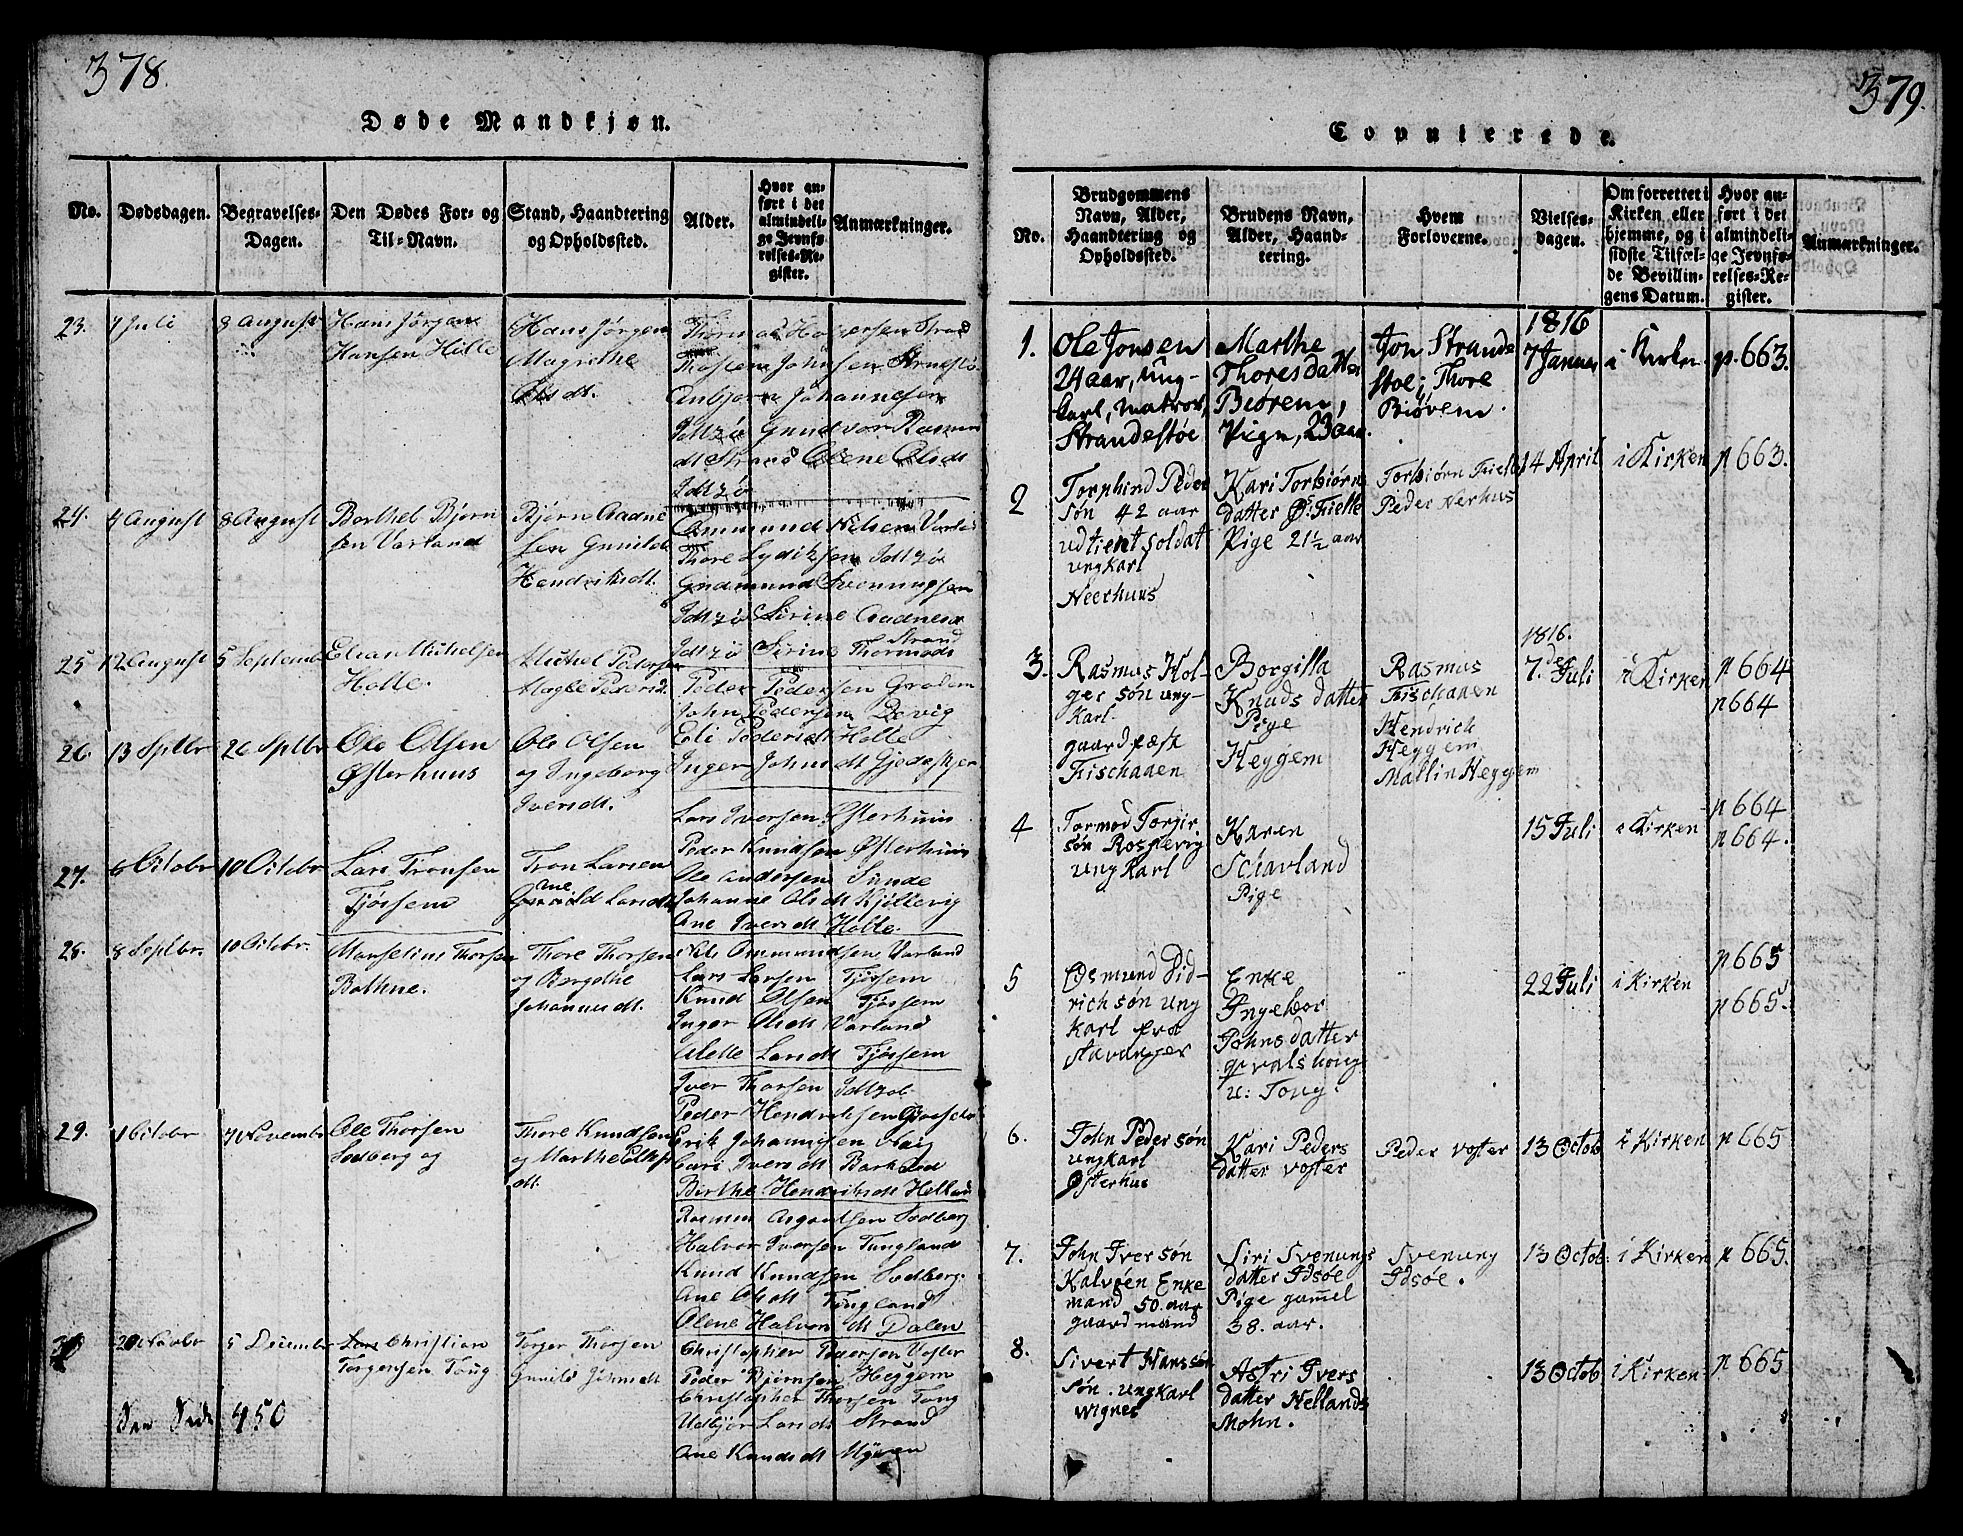 378.
Døde Mandkjøn.
No.
Dødsdagen.
Begravelses-
Dagen.
Den Dødes For- og
Til-Navn.
Stand, Haandtering
og Opholdssted.
Alder.
Hvor an-
ført i det
almindeli-
ge Jevnfø-
relses-Re-
gister.
Anmærkninger.
23.
7 Juli
8 August
Hans Jørgen
Hansen Holle
Hans Jørgen
Magrethe
Olsdt.
Thormod Holgersen Strand
Thosten Johnsen
Anbjørn Johannesen
Idtzø Gundvor Rasmus
dt Strand Olene Olsdt
Idtzø
24.
4 August
8 August
Berthel Bjørn
sen Varland
Bjørn Aadne
sen Gunild
Hendriksdt.
Ommund Nilsen Varla
Thore Lydiksen Idtzø
Gudmund Svenningsen
Idtzø Sirine Aadnesd
Strand
Idtzø Sirine Thormods
25
12 August
5 Septemb
Elias Michelsen
Holle.
Michel Pedersen
Magle Pedersd.
Peder Pedersen Grodem
John Pedersen Bevig
Eli Pedersdt Holle
Inger Johnsdt Gjedeskjer
26.
13 Sptbr
26 Sptbr
Ole Olsen
Østerhuus
Ole Olsen
og Ingeborg
Iversdt.
Lars Iversen Østerhuus
Peder Knudsen Østerhuus
Ole Andersen Sunde
Johanne Olsdt Kjøllevig
Ane Iversdt Holle.
27.
6 Octobr
10 Octobr
Lars Tronsen
Tjøssem
Tron Larsen
Ane
Gunild Larsdt
Nils Ommundsen Varland
Lars Larsen Tjøssem
Knud Olsen Tjøssem
Inger Olsdt Varland
Alette Larsdt Tjøssem
28.
8 Septbr.
10 Octobr.
Marselius Thorsen
Bathne.
Thore Thorsen
og Bergethe
Johannesdt.
Iver Thorsen Idtzø
Peder Hendriksen
Erik Johannesen Vaag
Cari Iversdt Barkved
Birthe Hendriksdt Helland
29.
1 Octobr
7 November
Ole Thorsen
Sodberg og
Thore Knudsen
og Marthe
dt.
Rasmus Asgautsen Sodberg
Halvor Iversen Tungland
Knud Knudsen Sodberg.
Ane Olsdt Tungland
Olene Halvorsdt Dalen
30
20 Novbr
5 December
Lars Christian
Torgersen Toug
Torger Thorsen
Gunild Johnsdt
Christopher Pedersen Voster
Peder Bjørnsen Heggem
Christopher Thorsen Tong
Udbjør Larsdt Strand
Ane Knudsdt Myren
See Side 450
379.
Copulerede.
No.
Brudgommens
Navn, Alder,
Haandtering og
Opholdssted.
Brudens Navn,
Alder, Haand-
tering.
Hvem
Forloverne.
Vielses-
dagen.
Om forrettet i
Kirken eller
hjemme, og i
sidste Tilfæl-
de Bevillin-
gens Datum.
Hvor an-
ført i det
almindeli-
ge Jevnfø-
relses-Re-
gister.
Anmærkninger.
1.
Ole Jonsen
24 aar, ung-
karl, matros,
Strandestøe
Marthe
Thoresdatter
Biørem,
Pige, 23 aar.
Jon Strande
støe; Thore
Biørem.
1816
7 Januar
i Kirken
p. 663.
2
Torphind Peder
søn 42 aar
udtient soldat
ungkarl
Neerhuus
Kari Torbiørns
datter Fielle
Pige 21½ aar
Torbiørn Fielle
Peder Nerhus
14 April
i Kirken
p 663.
3.
Rasmus Hol-
ger søn ung-
karl.
gaard fæst
Fischaaen
Borgilla
Knuds datter
Pige
Heggem
Rasmus
Fischaaen
Hendrick
Heggem
Mallin Heggem
1816.
7.de Juli
i Kirken
p 664
p 664
4
Tormod Torgir
søn Roskevig
ungkarl
Karen
Schavland
Pige
15 Juli
i Kirken
p 664
p 664.
5
Edsmund Did-
rich søn ung
karl fra
stavanger
Enke
Ingebor
Johnsdatter
u: Tong.
22 Juli
i Kirken
p 665
p 665.
6.
John Peder søn
ungkarl
Østerhus
Kari Peders
datter voster
Peder voster
13 Octob
i Kirken
p 665
7.
John Iver søn
Kalvøen Enke
mand 50. aar
gaard mand
Siri Svenungs
datter Idsøe
Pige gamel
38. aar.
Svenung
Idsøe.
13 Octob
i Kirken
p 665.
8.
Sivert Hans søn
søn. ungkarl
wignes
Astri Ivers
datter Hellands
Mohn.
13 Octob
i Kirken
p 665